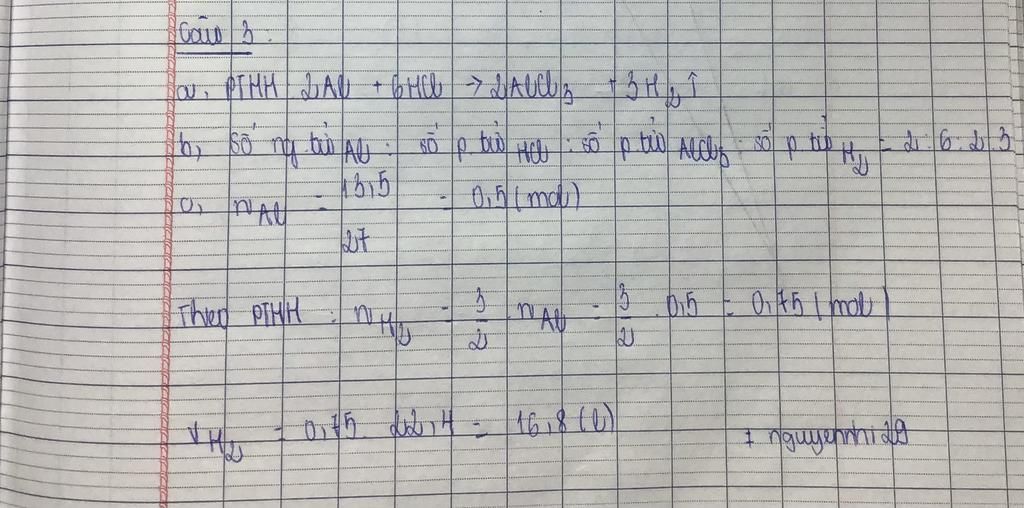 Câu 3:
a, PTHH 2Al + 6HCl → 2AlCl3 + 3H2↑
b, Số ng tử Al : số p tử HCl : số p tử AlCl3 : số p tử H2 = 2:6:2:3
c, nAl = 13,5/27 = 0,5 (mol)
Theo PTHH : nH2 = 3/2 nAl = 3/2 . 0,5 = 0,75 (mol)
VH2 = 0,75 . 22,4 = 16,8 (l)
nguyennhi29